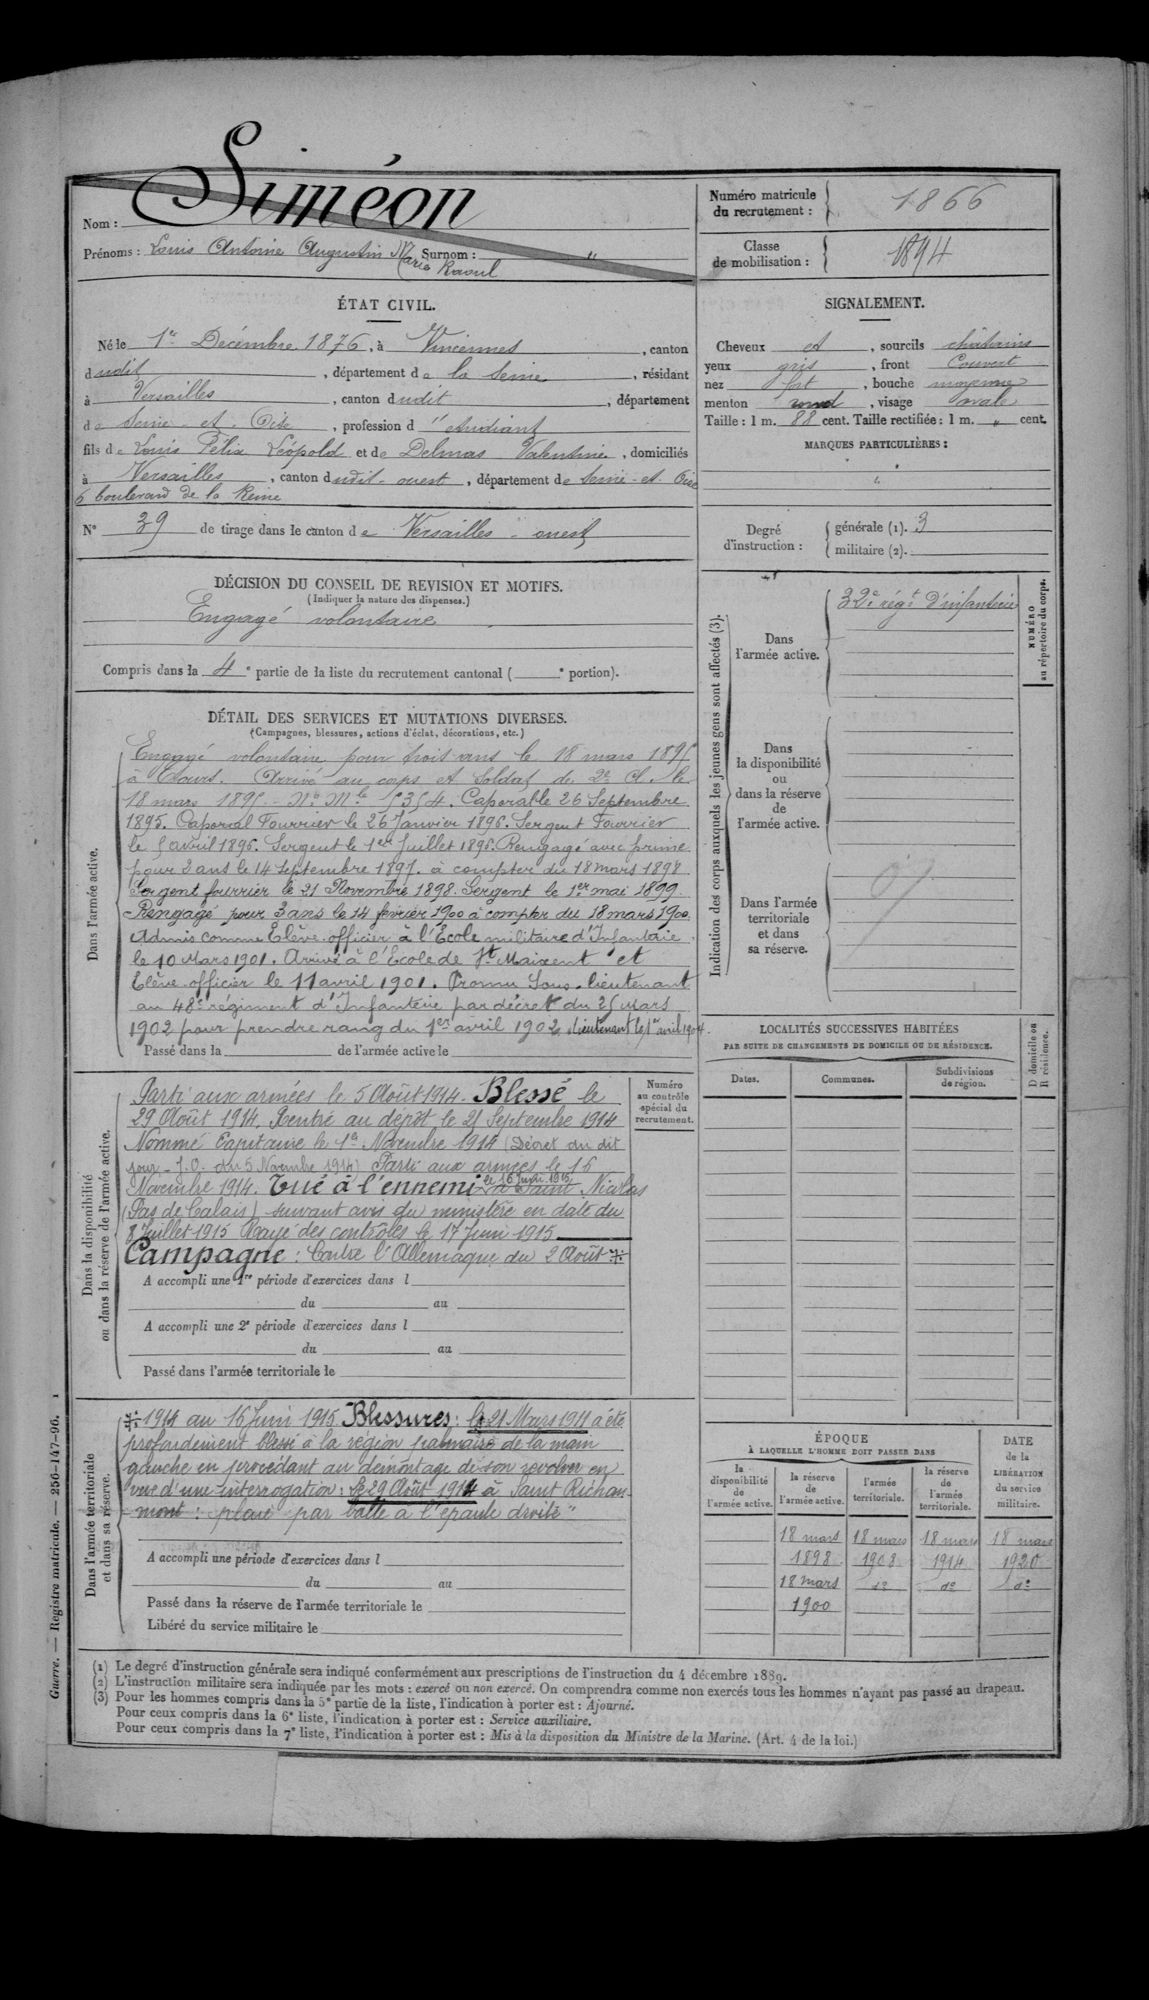 Siméon
Nom :
Prénoms : Louis Antoine Augustin Marie Raoul Surnom : "
Numéro matricule du recrutement : 1866
Classe de mobilisation : 1894
ÉTAT CIVIL.
Né le 1er Décembre 1876, à Vincennes, canton
dudit, département de la Seine, résidant
à Versailles, canton dudit, département
de Seine et Oise, profession d'étudiant
fils de Louis Félix Léopold et de Delmas Valentine, domiciliés
à Versailles, canton dudit - ouest, département de Seine-et-Oise
6 boulevard de la Reine
N° 39 de tirage dans le canton de Versailles - ouest
SIGNALEMENT.
Cheveux et, sourcils châtains
yeux gris, front Couvert
nez fort, bouche moyenne
menton rond, visage ovale
Taille : 1 m. 88 cent. Taille rectifiée : 1 m. " cent.
MARQUES PARTICULIÈRES :
"
Degré d'instruction : générale (1). 3
militaire (2).
DÉCISION DU CONSEIL DE REVISION ET MOTIFS.
(Indiquer la nature des dispenses.)
Engagé volontaire
Compris dans la 4e partie de la liste du recrutement cantonal ( e portion).
DÉTAIL DES SERVICES ET MUTATIONS DIVERSES.
(Campagnes, blessures, actions d'éclat, décorations, etc.)
Dans l'armée active.
Engagé volontaire pour trois ans le 18 mars 1895
à Tours. Arrivé au corps et Soldat de 2e Cl. le
18 mars 1895 - No Mle 5354. Caporal le 26 Septembre
1895. Caporal Fourrier le 26 Janvier 1896. Sergent Fourrier
le 5 avril 1896. Sergent le 1er Juillet 1896. Rengagé avec prime
pour 2 ans le 14 Septembre 1897. à compter du 18 mars 1898
Sergent fourrier le 21 Novembre 1898. Sergent le 1er mai 1899.
Rengagé pour 3 ans le 14 février 1900 à compter du 18 mars 1900.
Admis comme Elève-officier à l'Ecole militaire d'Infanterie
le 10 Mars 1901. Arrivé à l'Ecole de St Maixent et
Elève-officier le 11 avril 1901. Promu Sous-lieutenant
au 48e régiment d'Infanterie par décret du 25 Mars
1902 pour prendre rang du 1er avril 1902. Lieutenant le 1er avril 1904.
Passé dans la de l'armée active le
Dans la disponibilité ou dans la réserve de l'armée active.
Parti aux armées le 5 Août 1914. Blessé le
29 Août 1914. Rentré au dépôt le 21 Septembre 1914
Nommé Capitaine le 1er Novembre 1914 (Décret du dit
jour - J.O. du 5 Novembre 1914) Parti aux armées le 16
Novembre 1914. Tué à l'ennemi le 16 Juin 1915 à Saint Nicolas
(Pas de Calais) suivant avis du ministère en date du
8 Juillet 1915 Rayé des contrôles le 17 Juin 1915
Campagne : Contre l'Allemagne du 2 Août
A accompli une 1re période d'exercices dans l
du au
A accompli une 2e période d'exercices dans l
du au
Passé dans l'armée territoriale le
Numéro au contrôle spécial du recrutement.
Dans l'armée territoriale et dans sa réserve.
1914 au 16 Juin 1915. Blessures : le 21 Mars 1911 a été
profondément blessé à la région palmaire de la main
gauche en procédant au démontage de son revolver en
vue d'une interrogation : Le 29 Août 1914 à Saint Richau-
mont : plaie par balle à l'épaule droite"
A accompli une période d'exercices dans l
du au
Passé dans la réserve de l'armée territoriale le
Libéré du service militaire le
Indication des corps auxquels les jeunes gens sont affectés (3).
NUMÉRO au répertoire du corps.
Dans l'armée active. 32e régt d'infanterie
Dans la disponibilité ou dans la réserve de l'armée active.
Dans l'armée territoriale et dans sa réserve.
LOCALITÉS SUCCESSIVES HABITÉES
PAR SUITE DE CHANGEMENTS DE DOMICILE OU DE RÉSIDENCE.
Dates. Communes. Subdivisions de région.
D domicile ou R résidence.
ÉPOQUE
À LAQUELLE L'HOMME DOIT PASSER DANS
DATE de la LIBÉRATION du service militaire.
la disponibilité de l'armée active. la réserve de l'armée active. l'armée territoriale. la réserve de l'armée territoriale.
18 mars 18 mars 18 mars 18 mars
1898 1908 1914 1920
18 mars do do do
1900
(1) Le degré d'instruction générale sera indiqué conformément aux prescriptions de l'instruction du 4 décembre 1889.
(2) L'instruction militaire sera indiquée par les mots : exercé ou non exercé. On comprendra comme non exercés tous les hommes n'ayant pas passé au drapeau.
(3) Pour les hommes compris dans la 5e partie de la liste, l'indication à porter est : Ajourné.
Pour ceux compris dans la 6e liste, l'indication à porter est : Service auxiliaire.
Pour ceux compris dans la 7e liste, l'indication à porter est : Mis à la disposition du Ministre de la Marine. (Art. 4 de la loi.)
Guerre. — Registre matricule. — 256-147-96. 1